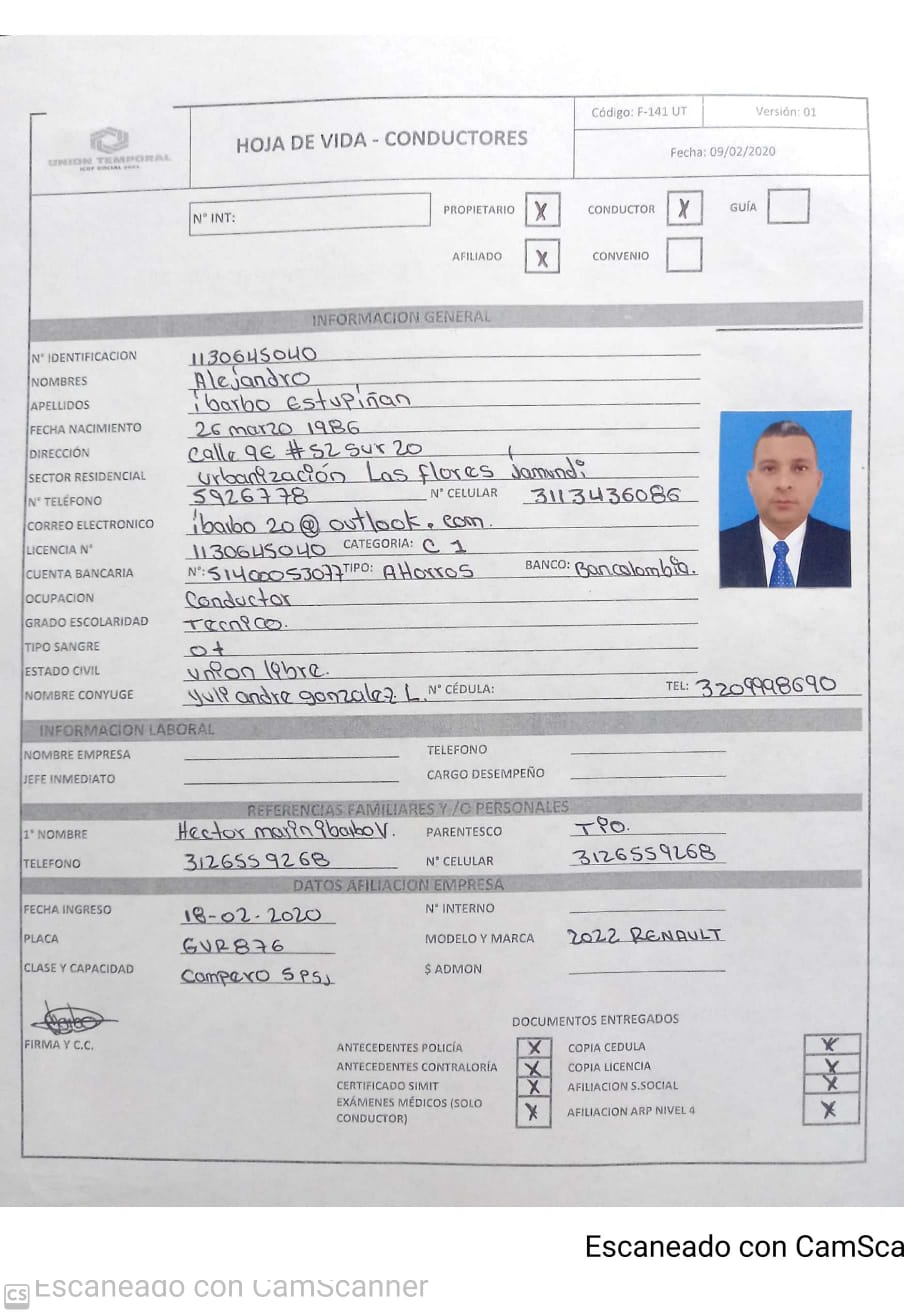 UNION TEMPORAL
HOJA DE VIDA - CONDUCTORES
Código: F-141 UT
Versión: 01
Fecha: 09/02/2020
N° INT:
PROPIETARIO X CONDUCTOR X GUÍA
AFILIADO X CONVENIO
INFORMACION GENERAL
N° IDENTIFICACION 1130645040
NOMBRES Alejandro
APELLIDOS ibarbo Estupiñan
FECHA NACIMIENTO 26 marzo 1986
DIRECCIÓN Calle 9E # 52 sur 20
SECTOR RESIDENCIAL urbanización Las flores Jamundi
N° TELÉFONO 5926778 N° CELULAR 3113436086
CORREO ELECTRONICO ibarbo 20@outlook.com.
LICENCIA N° 1130645040 CATEGORIA: C 1
CUENTA BANCARIA N°: 51400053077 TIPO: AHorros BANCO: Bancolombia.
OCUPACION Conductor
GRADO ESCOLARIDAD Tecnico.
TIPO SANGRE O+
ESTADO CIVIL union libre.
NOMBRE CONYUGE Yuli andre gonzalez L. N° CÉDULA: TEL: 3209998690
INFORMACION LABORAL
NOMBRE EMPRESA TELEFONO
JEFE INMEDIATO CARGO DESEMPEÑO
REFERENCIAS FAMILIARES Y /O PERSONALES
1° NOMBRE Hector marin ibarbo V. PARENTESCO Tio.
TELEFONO 3126559268 N° CELULAR 3126559268
DATOS AFILIACION EMPRESA
FECHA INGRESO 18-02-2020 N° INTERNO
PLACA GUR876 MODELO Y MARCA 2022 RENAULT
CLASE Y CAPACIDAD Campero 5 PSJ $ ADMON
FIRMA Y C.C.
DOCUMENTOS ENTREGADOS
ANTECEDENTES POLICÍA X COPIA CEDULA X
ANTECEDENTES CONTRALORÍA X COPIA LICENCIA X
CERTIFICADO SIMIT X AFILIACION S.SOCIAL X
EXÁMENES MÉDICOS (SOLO CONDUCTOR) X AFILIACION ARP NIVEL 4 X
Escaneado con CamSca
CS Escaneado con CamScanner